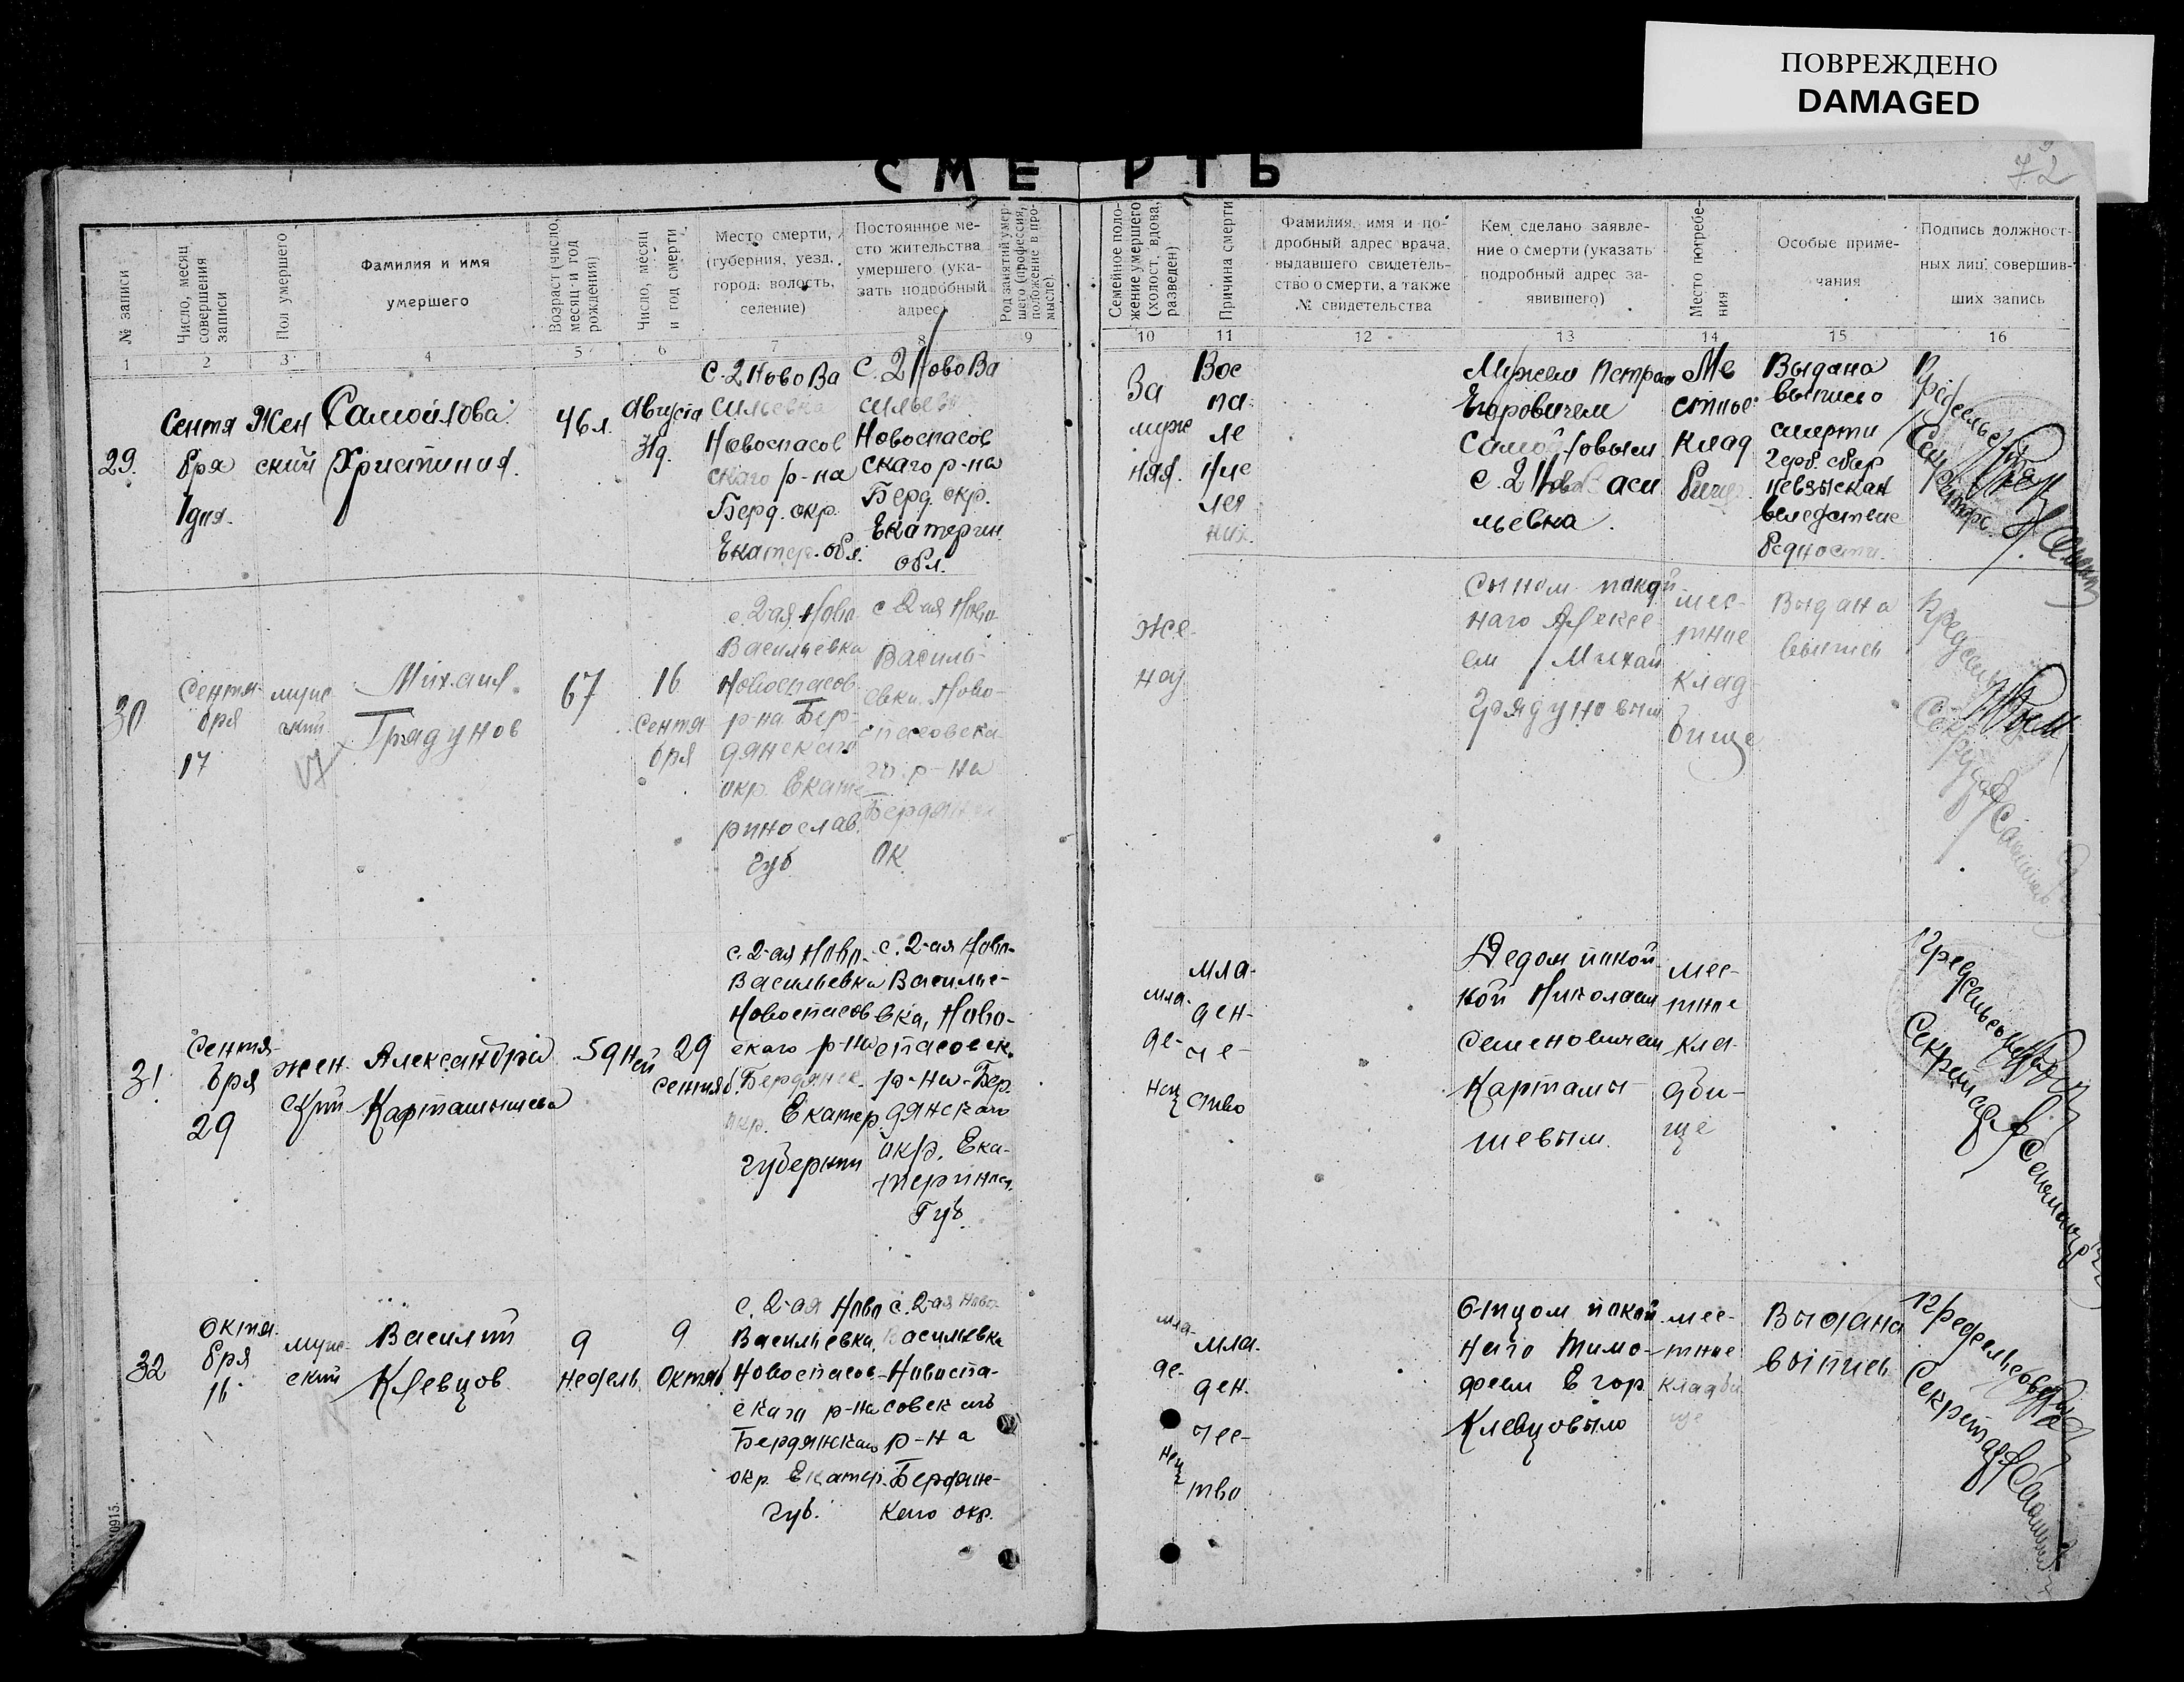 ПОВРЕЖДЕНО
DAMAGED
72
СМЕРТЬ
№ записи
Число, месяц
совершения
записи
Пол умершего
Фамилия и имя
умершего
Возраст (число,
месяц и год
рождения)
Число, месяц
и год смерти
Место смерти,
(губерния, уезд,
город, волость,
селение)
Постоянное ме-
сто жительства
умершего (ука-
зать подробный
адрес)
Род занятий умер-
шего (профессия,
положение в про-
мысле).
Семейное поло-
жение умершего
(холост, вдова,
разведен)
Причина смерти
Фамилия, имя и по-
дробный адрес врача,
выдавшего свидетель-
ство о смерти, а также
№ свидетельства
Кем сделано заявле-
ние о смерти (указать
подробный адрес за-
явившего)
Место погребе-
ния
Особые приме-
чания
Подпись должност-
ных лиц, совершив-
ших запись
1 2 3 4 5 6 7 8 9 10 11 12 13 14 15 16
29.
Сентя
бря
1 дня.
Жен
ский
Самойлова
Христиния.
46 л.
Августа
31 д.
с. 2 Ново Ва
сильевка
Новоспасов
скаго р-на
Берд. окр.
Екатер. обл.
с. 2 Ново Ва
сильевк
Новоспасов
скаго р-на
Берд. окр.
Екатерин.
обл.
За
муж
няя.
Вос
па
ле
ние
лег
ких.
Мужем Петром
Егоровичем
Самойловым
с. 2 Нов Васи
льевка.
Ме
стное
клад
бище.
Выдана
выпись о
смерти
Герб. сбор
невзыскан
вследствие
бедности.
Предсельсов
Секретарь
30
Сентя-
бря
17
муж-
ский
Михаил
Грядунов
67
16
Сентя
бря
с. 2-ая Ново
Васильевка
Новоспасов
р-на Бер-
дянского
окр. Екате-
ринослав.
губ
с 2-ая Ново
Василь-
евка Ново-
спасовска
го р-на
Бердянск
ок.
Же-
нат
Сыном покой
наго Алексе
ем Михай
Грядуновым
мес-
тное
клад
бище
Выдана
выпись
Предсельс
Секретарь
31
Сентя-
бря
29
жен-
ский
Александра
Карташышева
5 дней
29
сентяб.
с. 2-ая Ново-
Васильевка
Новоспасов
скаго р-на
Бердянск.
окр. Екатер.
губернии
с. 2-ая Ново-
Василье-
вка, Ново-
спасовск.
р-на Бер.
дянскаго
окр. Ека-
теринос.
Губ.
мла-
де-
нец
мла-
ден-
че-
ство
Дедом покой-
ной Николаем
Семеновичем
Карташы-
шевым.
мес-
тное
кла-
дби-
ще
Предсельсовета
Секретарь
32
Октя-
бря
16
муж-
ский
Василий
Клевцов
9
недель
9
Октяб
с. 2-ая Ново
Васильевка,
Новоспасов-
скаго р-на
Бердянскаго
окр. Екатер.
губ.
с. 2-ая Ново-
Васильевка
Новоспа-
совскаго
р-на
Бердянс-
каго окр.
мла-
де-
нец
мла-
ден-
чес-
тво
Отцом покой
наго Тимо-
феем Егор
Клевцовым
мес-
тное
кладби
ще
Выдана
выпись
Предсельсовета
Секретарь